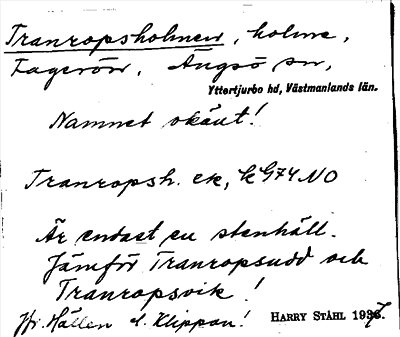 Tranropsholmen, holme,
Fagerön, Ängsö sn,
Yttertjurbo hd, Västmanlands län.
Namnet okänt!
Tranropsh. ek, k G74 NO
Är endast en stenhäll.
Jämför Tranropsudd och
Tranropsvik!
Hällen l. Klippan! HARRY STÅHL 1937.